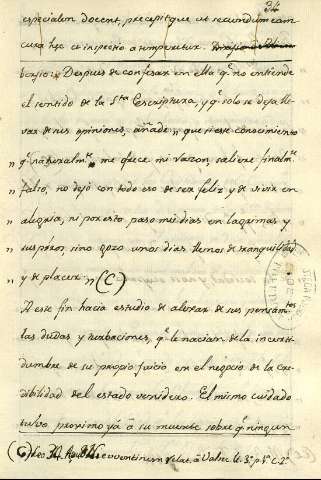 34
especialem docent, precepitque ut secundum eam
cura hęc et inspectio atemperetur.
Despues de confesar en ella q.e no entiende
el sentido de la S.ta Escriptura, y q.e solo se deja lle-
var de sus opiniones, añade „ que si este conocimiento
„ q.e naturalm.te me ofrece mi razon, saliere finalm.te
„ falso, no dejó con todo eso de ser feliz y de vivir en
„ alegria, ni por esto paso mis dias en lagrimas y
„ suspiros, sino gozo unos dias llenos de tranquilidad
„ y de placer „ (C)
A este fin hacia estudio de alexar de sus pensam.tos
las dudas y turbaciones, q.e le nacian de la incerti-
dumbre de su propio juicio en el negocio de la cre-
dibilidad del estado venidero. El mismo cuidado
tubo proximo ya à su muerte sobre q.e ningun
(C)